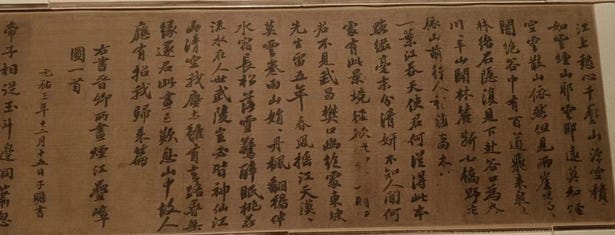 江上愁心千疊山浮空積
如雲煙山耶雲耶遠莫知煙
空雲散山依然但見兩崖
闇絕谷中有百道飛來泉
林絡石隱復見下赴谷口為
川川平山開林麓斷小橋野店
依山前行人
一葉江吞天使君何從得此本
點綴毫末分清妍不知人間何
處有此境徑欲
君不見武昌樊口幽絕處東坡
先生留五年春風搖江天漠漠
莫雲卷雨山娟娟丹楓翻鴉伴
水宿長松落雪驚醉眠桃花
流水在人世武陵豈必皆神仙江
山清空我塵土雖有去路尋無
緣還君此畫三歎息山中故人
應有招我歸來篇
右書晉卿所畫煙江疊嶂
圖一首
元祐三年十二月十五日子瞻書
帝子相從玉斗邊洞簫忽